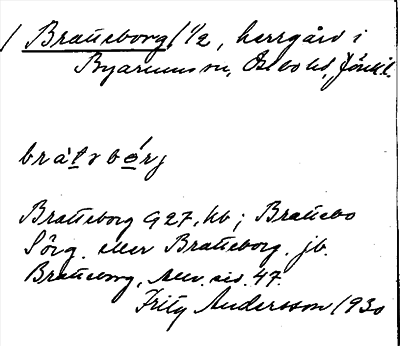 / Bratteborg / 1/2, herrgård i
Byarums sn, Östbo hd, Jönk. l.
bràt⸱ɐbórj
Bratteborg G 27, hb; Brattebo
Sörg. eller Bratteborg. jb.
Bratteborg,
Fritz Andersson 1930